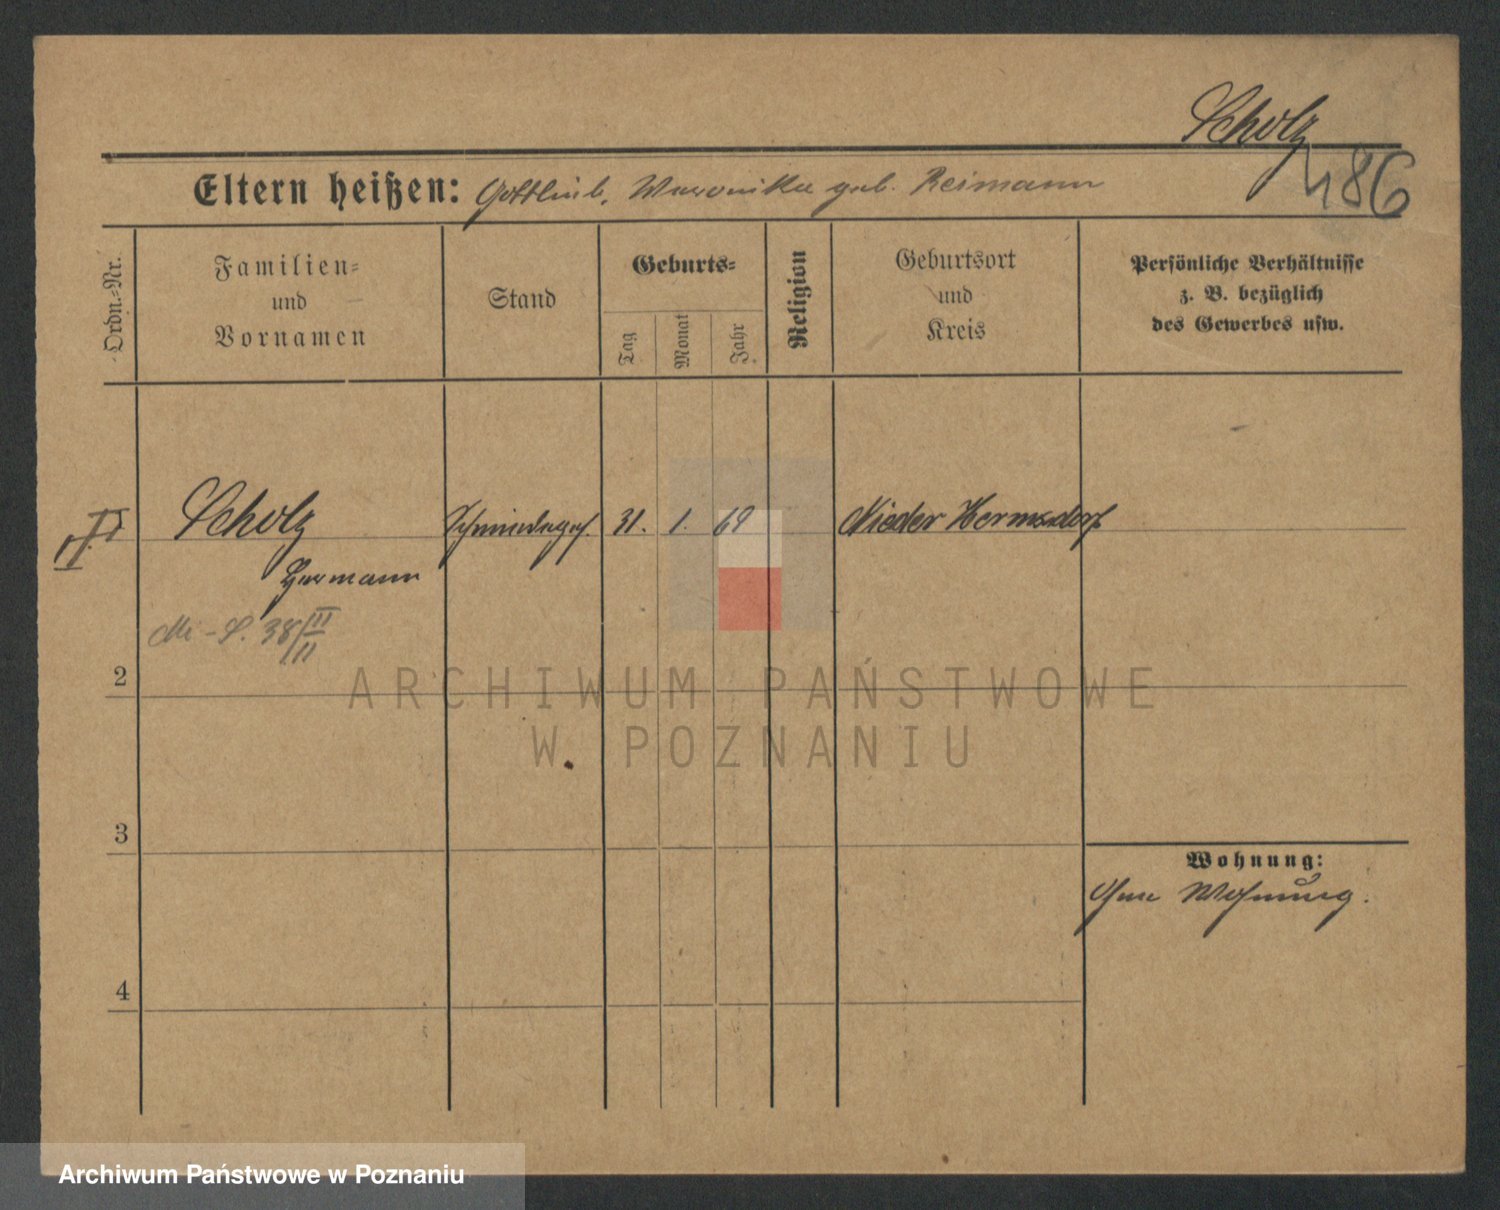 Scholz
486
Eltern heißen: Gottlieb, Weronika geb. Reimann
Ordn.-Nr.
Familien-
und
Vornamen
Stand
Geburts-
Tag
Monat
Jahr
Religion
Geburtsort
und
Kreis
Persönliche Verhältnisse
z. B. bezüglich
des Gewerbes usw.
Scholz
Schmiedeges.
31.
1.
69
Nieder Hermsdorf
Hermann
38 III/II
2
3
4
Wohnung:
Ohne Wohnung.
ARCHIWUM PAŃSTWOWE
W POZNANIU
Archiwum Państwowe w Poznaniu